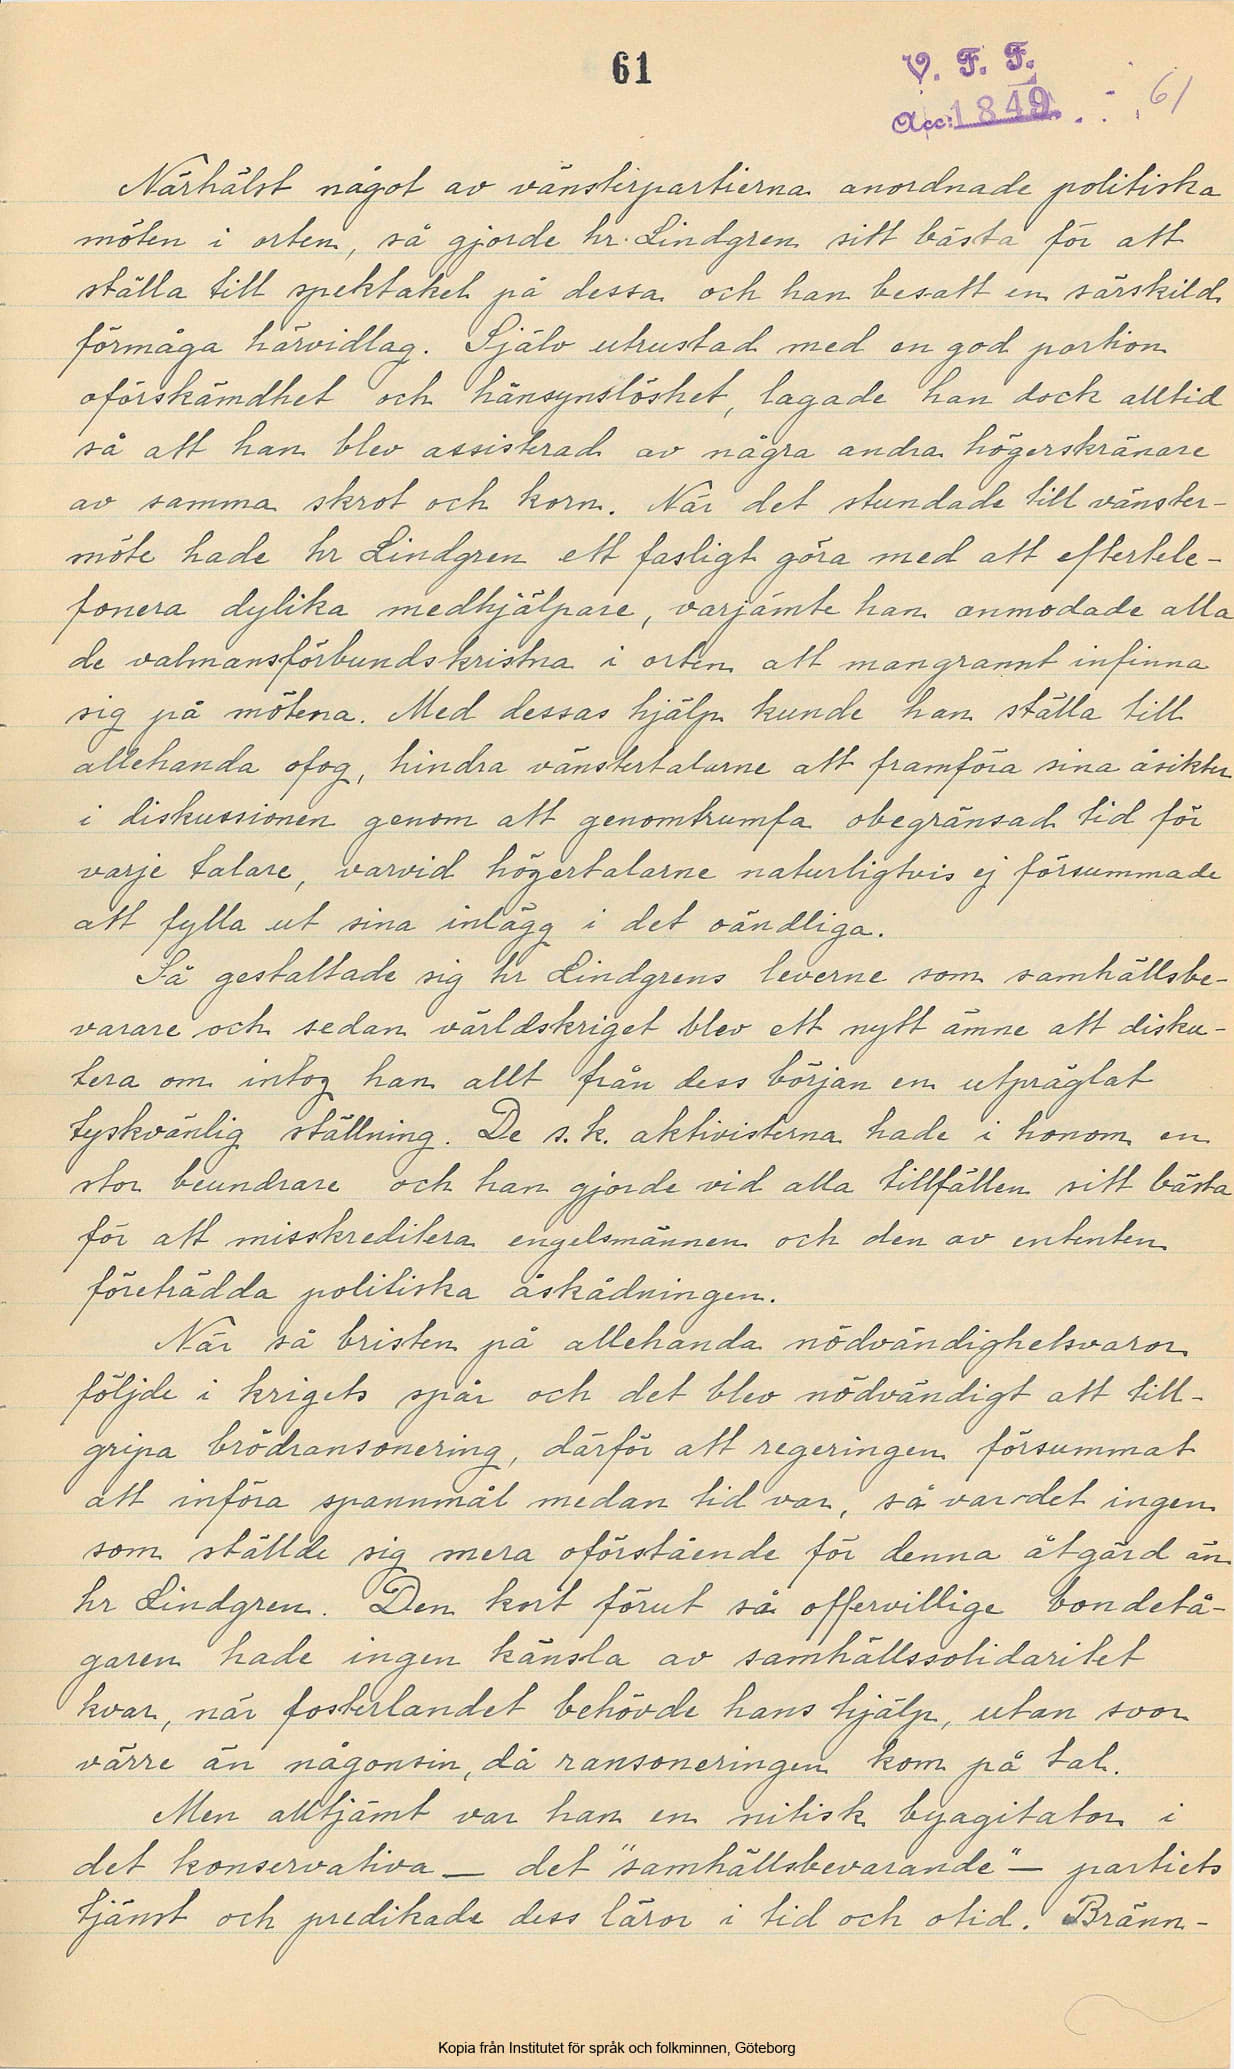 61
V. F. F.
Acc: 1849. 61
Närhälst något av vänsterpartierna anordnade politiska
möten i orten, så gjorde hr. Lindgren sitt bästa för att
ställa till spektakel på dessa och han besatt en särskild
förmåga härvidlag. Själv utrustad med en god portion
oförskämdhet och hänsynslöshet, lagade han dock alltid
så att han blev assisterad av några andra högerskränare
av samma skrot och korn. När det stundade till vänster-
möte hade hr Lindgren ett fasligt göra med att eftertele-
fonera dylika medhjälpare, varjämte han anmodade alla
de valmansförbundskristna i orten att mangrannt infinna
sig på mötena. Med dessas hjälp kunde han ställa till
allehanda ofog, hindra vänstertalarne att framföra sina åsikter
i diskussionen genom att genomtrumfa obegränsad tid för
varje talare, varvid högertalarne naturligtvis ej försummade
att fylla ut sina inlägg i det oändliga.
Så gestaltade sig hr Lindgrens leverne som samhällsbe-
varare och sedan världskriget blev ett nytt ämne att disku-
tera om intog han allt från dess början en utpräglat
tyskvänlig ställning. De s.k. aktivisterna hade i honom en
stor beundrare och han gjorde vid alla tillfällen sitt bästa
för att misskreditera engelsmännen och den av ententen
företrädda politiska åskådningen.
När så bristen på allehanda nödvändighetsvaror
följde i krigets spår och det blev nödvändigt att till-
gripa brödransonering, därför att regeringen försummat
att införa spannmål medan tid var, så var det ingen
som ställde sig mera oförstående för denna åtgärd än
hr Lindgren. Den kort förut så offervillige bondetå-
garen hade ingen känsla av samhällssolidaritet
kvar, när fosterlandet behövde hans hjälp, utan svor
värre än någonsin, då ransoneringen kom på tal.
Men alltjämt var han en nitisk byagitator i
det konservativa – det "samhällsbevarande" – partiets
tjänst och predikade dess läror i tid och otid. Bränn-
Kopia från Institutet för språk och folkminnen, Göteborg